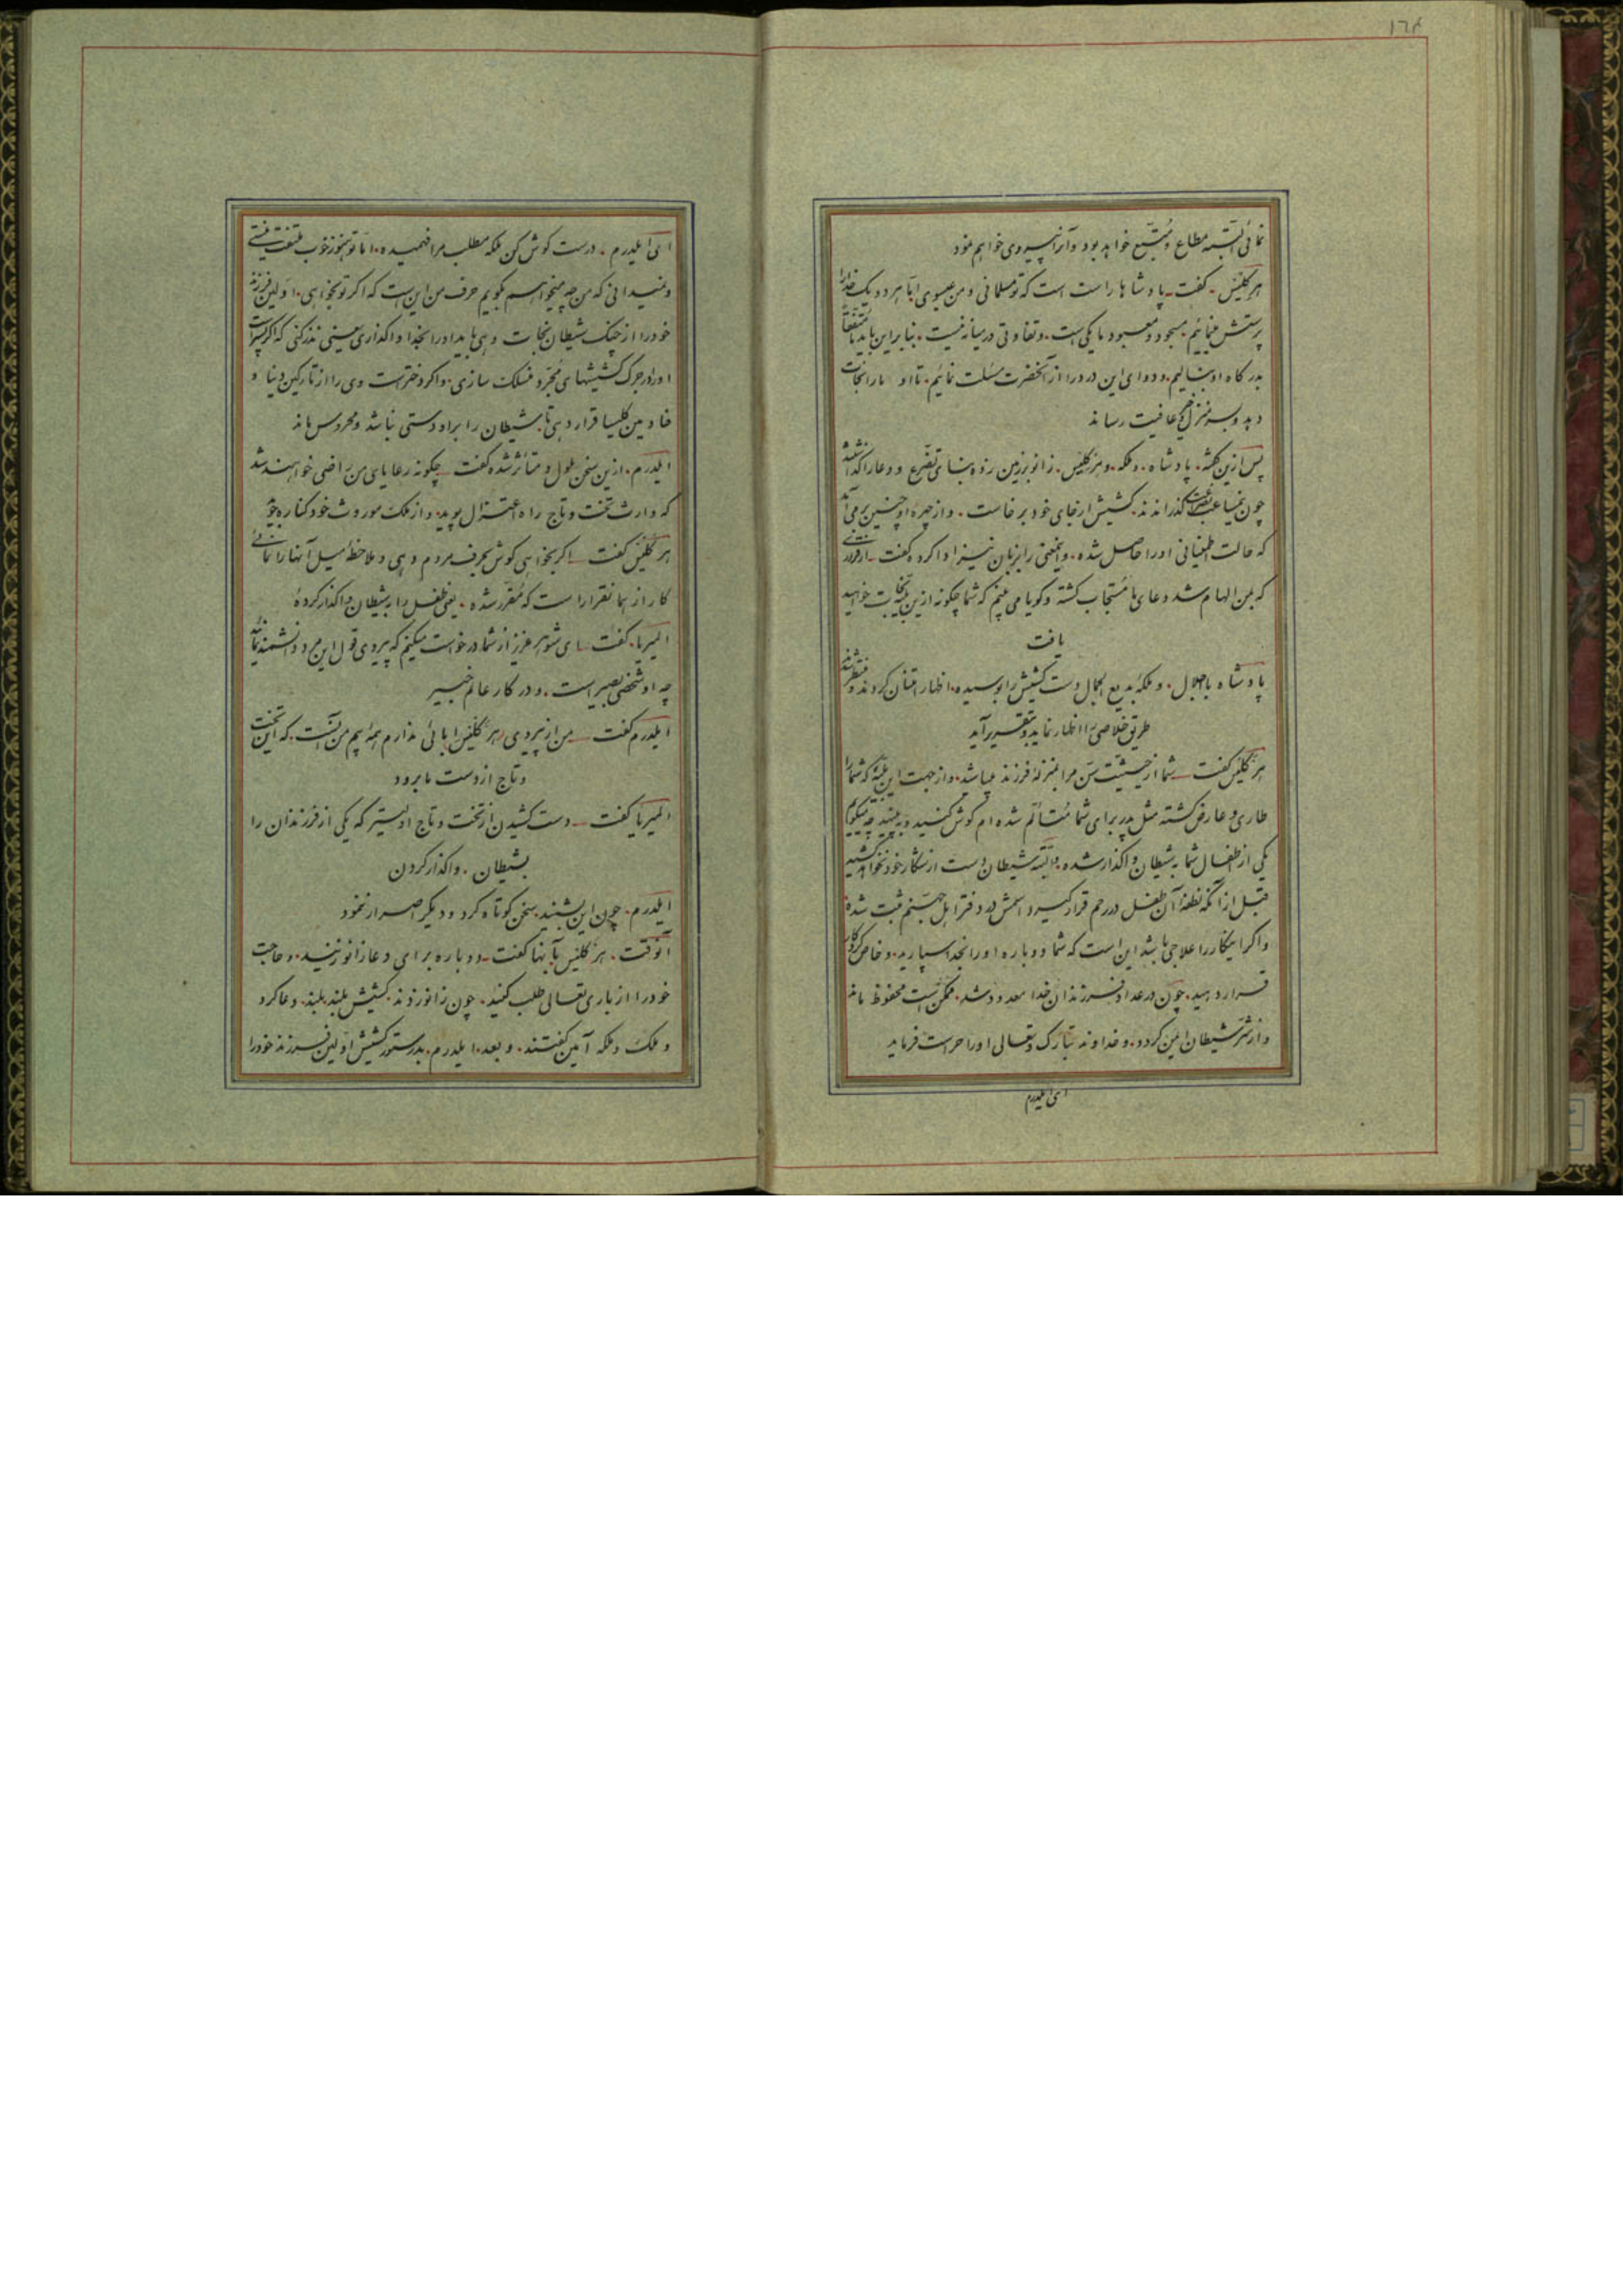 ١٦٨
نمائی البته مطاع و متبع خواهد بود و آنرا پیروی خواهم نمود
هرکلیس . گفت ـ پادشاها راست است که تو مسلمانی و من عیسوی اما هر دو یک خدا را
پرستش مینمائیم . مسجود و معبود ما یکی است . و تفاوتی در میانه نیست . بنابراین باید متفقاً
بدرگاه او بنالیم . و دوای این درد را از آنحضرت مسئلت نمائیم . تا او ما را نجات
دهد و بسرمنزل عافیت رساند
پس ازین گفته . پادشاه . و ملکه . و هرکلیس . زانو بر زمین زده بنای تضرع و دعا را گذاشتند
چون نیم ساعت گذراندند . کشیش از جای خود برخاست . و از چهره او چنین برمی‌آمد
که حالت اطمینانی او را حاصل شده . و اینمعنی را بزبان نیز ادا کرده گفت ـ از قراری
که بمن الهام شد دعای ما مستجاب گشته و گویا می بینم که شما چگونه ازین بلیه نجات خواهید
یافت
پادشاه با جلال . و ملکه بدیع الجمال دست کشیش را بوسیده . اظهار امتنان کردند و منتظر شدند
طریق خلاصی را اظهار نماید و بتقریر آید
هرکلیس گفت ـ شما از حیثیت سن مرا بمنزله فرزند میباشید . و از جهت این بلیه که شما را
طاری و عارض گشته مثل پدر برای شما متألم شده ام گوش کنید و ببینید چه میگویم
یکی از اطفال شما بشیطان واگذار شده . و البته شیطان دست از شکار خود نخواهد کشید
قبل از آنکه نطفه آن طفل در رحم قرار گیرد اسمش در دفتر اهل جهنم ثبت شده
و اگر اینکار را علاجی باشد این است که شما دوباره او را بخدا سپارید . و خاص کردگار
قرار دهید . چون در عداد فرزندان خدا معدود شد . ممکن است محفوظ ماند
و از شر شیطان ایمن گردد . و خداوند تبارک و تعالی او را حراست فرماید
ای ایلدرم
ای ایلدرم . درست گوش کن ملکه مطلب مرا فهمیده . اما تو هنوز خوب ملتفت نیستی
و نمیدانی که من چه میخواهم بگویم حرف من این است که اگر تو بخواهی . اولین فرزند
خود را از چنک شیطان نجات دهی باید او را بخدا واگذاری یعنی نذر کنی که اگر پسر است
او را در جرگ کشیشهای مجرد منسلک سازی . و اگر دختر است وی را از تارکین دنیا و
خادمین کلیسا قرار دهی تا شیطان را بر او دستی نباشد و محروس ماند
ایلدرم . ازین سخن ملول و متأثر شده گفت ـ چگونه رعایای من راضی خواهند شد
که وارث تخت و تاج راه اعتزال پوید . و از ملک موروث خود کناره جوید
هرکلیس گفت ـ اگر بخواهی گوش بحرف مردم دهی و ملاحظه میل آنها را نمائی
کار از همانقرار است که مقرر شده . یعنی طفل را به شیطان واگذار کرده
المیریا . گفت ـ ای شوهر عزیز از شما درخواست میکنم که پیروی قول این مرد دانشمند نمائید
چه او شخصی بصیر است . و در کار عالم خبیر
ایلدرم گفت ـ من از پیروی هرکلیس ابائی ندارم همه بیم من آنست . که این تخت
و تاج از دست ما برود
المیریا گفت ـ دست کشیدن از تخت و تاج اولیتر که یکی از فرزندان را
بشیطان . واگذار کردن
ایلدرم . چون این بشنید . سخن کوتاه کرد و دیگر اصرار ننمود
آنوقت . هرکلیس بآنها گفت ـ دوباره برای دعا زانو زنید . و حاجت
خود را از باری تعالی طلب کنید . چون زانو زدند . کشیش بلند بلند . دعا کرد
و ملک و ملکه آمین گفتند . و بعد . ایلدرم . بدستور کشیش اولین فرزند خود را